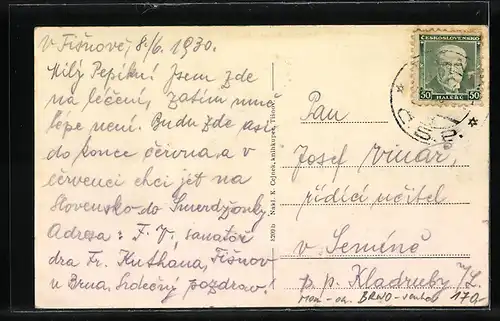 V Tišnově 8/6. 1930.
Milý Pepíku! Jsem zde
na léčení, zatím mně
lépe není. Budu zde asi
do konce června, a v
červenci chci jet na
Slovensko do Smerdžonky
Adresa: F. V., sanatoř
dra Fr. Kuthana, Tišnov
u Brna. Srdečný pozdrav!
Nakl. K. Cejnek, knihkupec, Tišnov.
ČESKOSLOVENSKO
50 HALÉŘŮ 50
Pan
Josef Vinar,
řídící učitel
v Semíně
p. p. Kladruby n/L.
BRNO-venkov 170